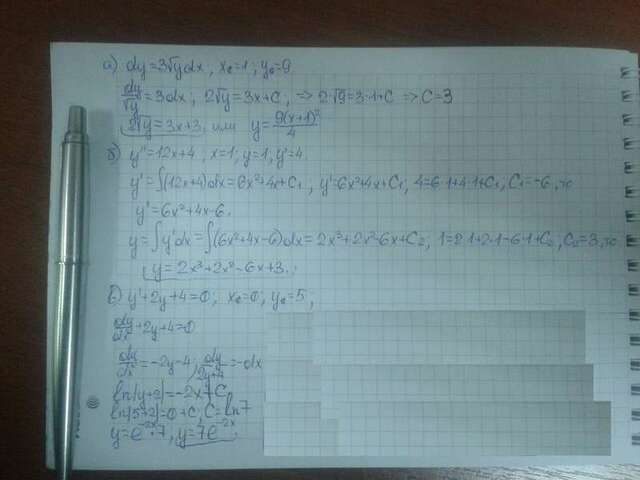 а) dy=3√y dx, x₀=1; y₀=9
dy/√y=3dx; 2√y=3x+C; ⇒ 2·√9=3·1+C ⇒ C=3
2√y=3x+3, или y=9(x+1)²/4
б) y''=12x+4, x=1; y=1, y'=4.
y'=∫(12x+4)dx=6x²+4x+C₁, y'=6x²+4x+C₁, 4=6·1+4·1+C₁, C₁=-6, то
y'=6x²+4x-6.
y=∫y'dx=∫(6x²+4x-6)dx=2x³+2x²-6x+C₂; 1=2·1+2·1-6·1+C₂, C₂=3, то
y=2x³+2x²-6x+3.
в) y'+2y+4=0; x₀=0; y₀=5;
dy/dx+2y+4=0
dy/dx=-2y-4; dy/2y+4=-dx
ln|y+2|=-2x+C
ln|5+2|=0+C; C=ln7
y=e⁻²ˣ·7, y=7e⁻²ˣ.